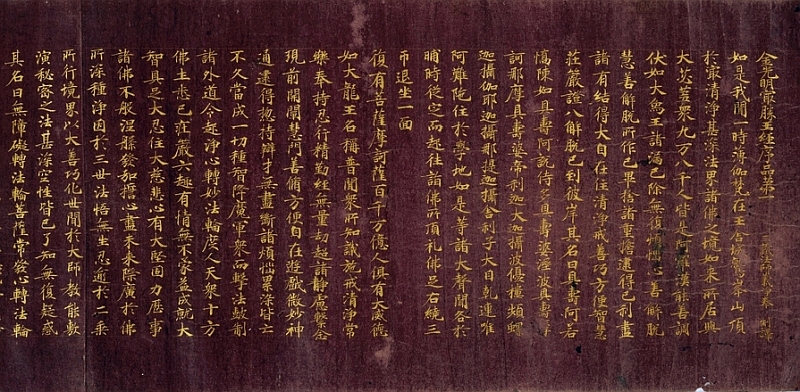 金光明最勝王經序品第一 三藏法師義淨奉 制譯
如是我聞一時薄伽梵在王舍城鷲峯山頂
於最清淨甚深法界諸佛之境如來所居與
大苾芻眾九万八千人皆是阿羅漢能善調
伏如大象王諸漏已除無復煩惱心善解脫
慧善解脫所作已畢捨諸重擔逮得己利盡
諸有結得大自在住清淨戒善巧方便智慧
莊嚴證八解脫已到彼岸其名曰具壽阿若
憍陳如具壽阿說侍多具壽婆濕波具壽摩
訶那摩具壽婆帝利迦大迦攝波優樓頻螺
迦攝伽耶迦攝那提迦攝舍利子大目乾連唯
阿難陀住於學地如是等諸大聲聞各於
晡時從定而起往詣佛所頂礼佛足右繞三
帀退坐一面
復有菩薩摩訶薩百千万億人俱有大威德
如大龍王名稱普聞眾所知識施戒清淨常
樂奉持忍行精勤經無量劫超諸靜慮繫念
現前開闡慧門善脩方便自在遊戲微妙神
通逮得惣持辯才無盡斷諸煩惱累染皆亡
不久當成一切種智降魔軍眾而擊法鼓制
諸外道令起淨心轉妙法輪度人天眾十方
佛土悉已莊嚴六趣有情無不蒙益成就大
智具足大忍住大慈悲心有大堅固力歷事
諸佛不般涅槃發弘誓心盡未來際廣於佛
所深種淨因於三世法悟無生忍逾於二乘
所行境界以大善巧化世間於大師教能敷
演秘密之法甚深空性皆已了知無復疑惑
其名曰無障礙轉法輪菩薩常發心轉法輪